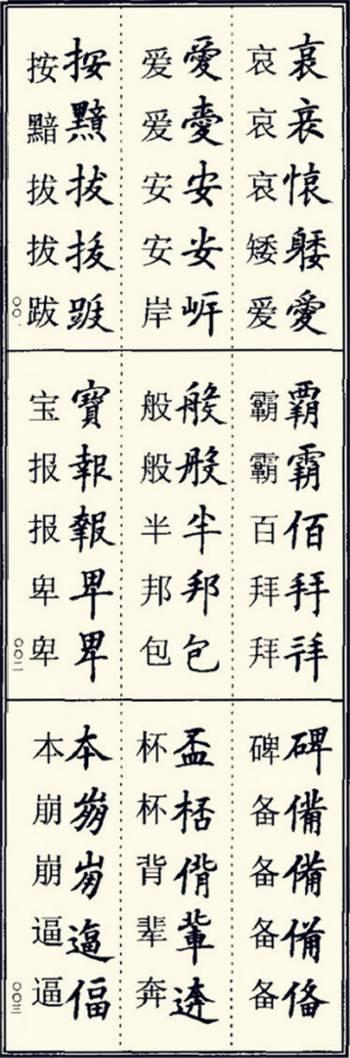 哀愛
哀哀哀矮爱
愛安安
爱爱安安岸
按拔拔跋
按黯拔拔跋
〇〇一
覇霸佰拜拜
霸霸百拜拜
般般半邦包
般般半邦包
寶報報卑卑
宝报报卑卑
〇〇二
碑備備備俻
碑备备备备
盃桮偝輩逩
杯杯背辈奔
本崩崩逼偪
本崩崩逼逼
〇〇三